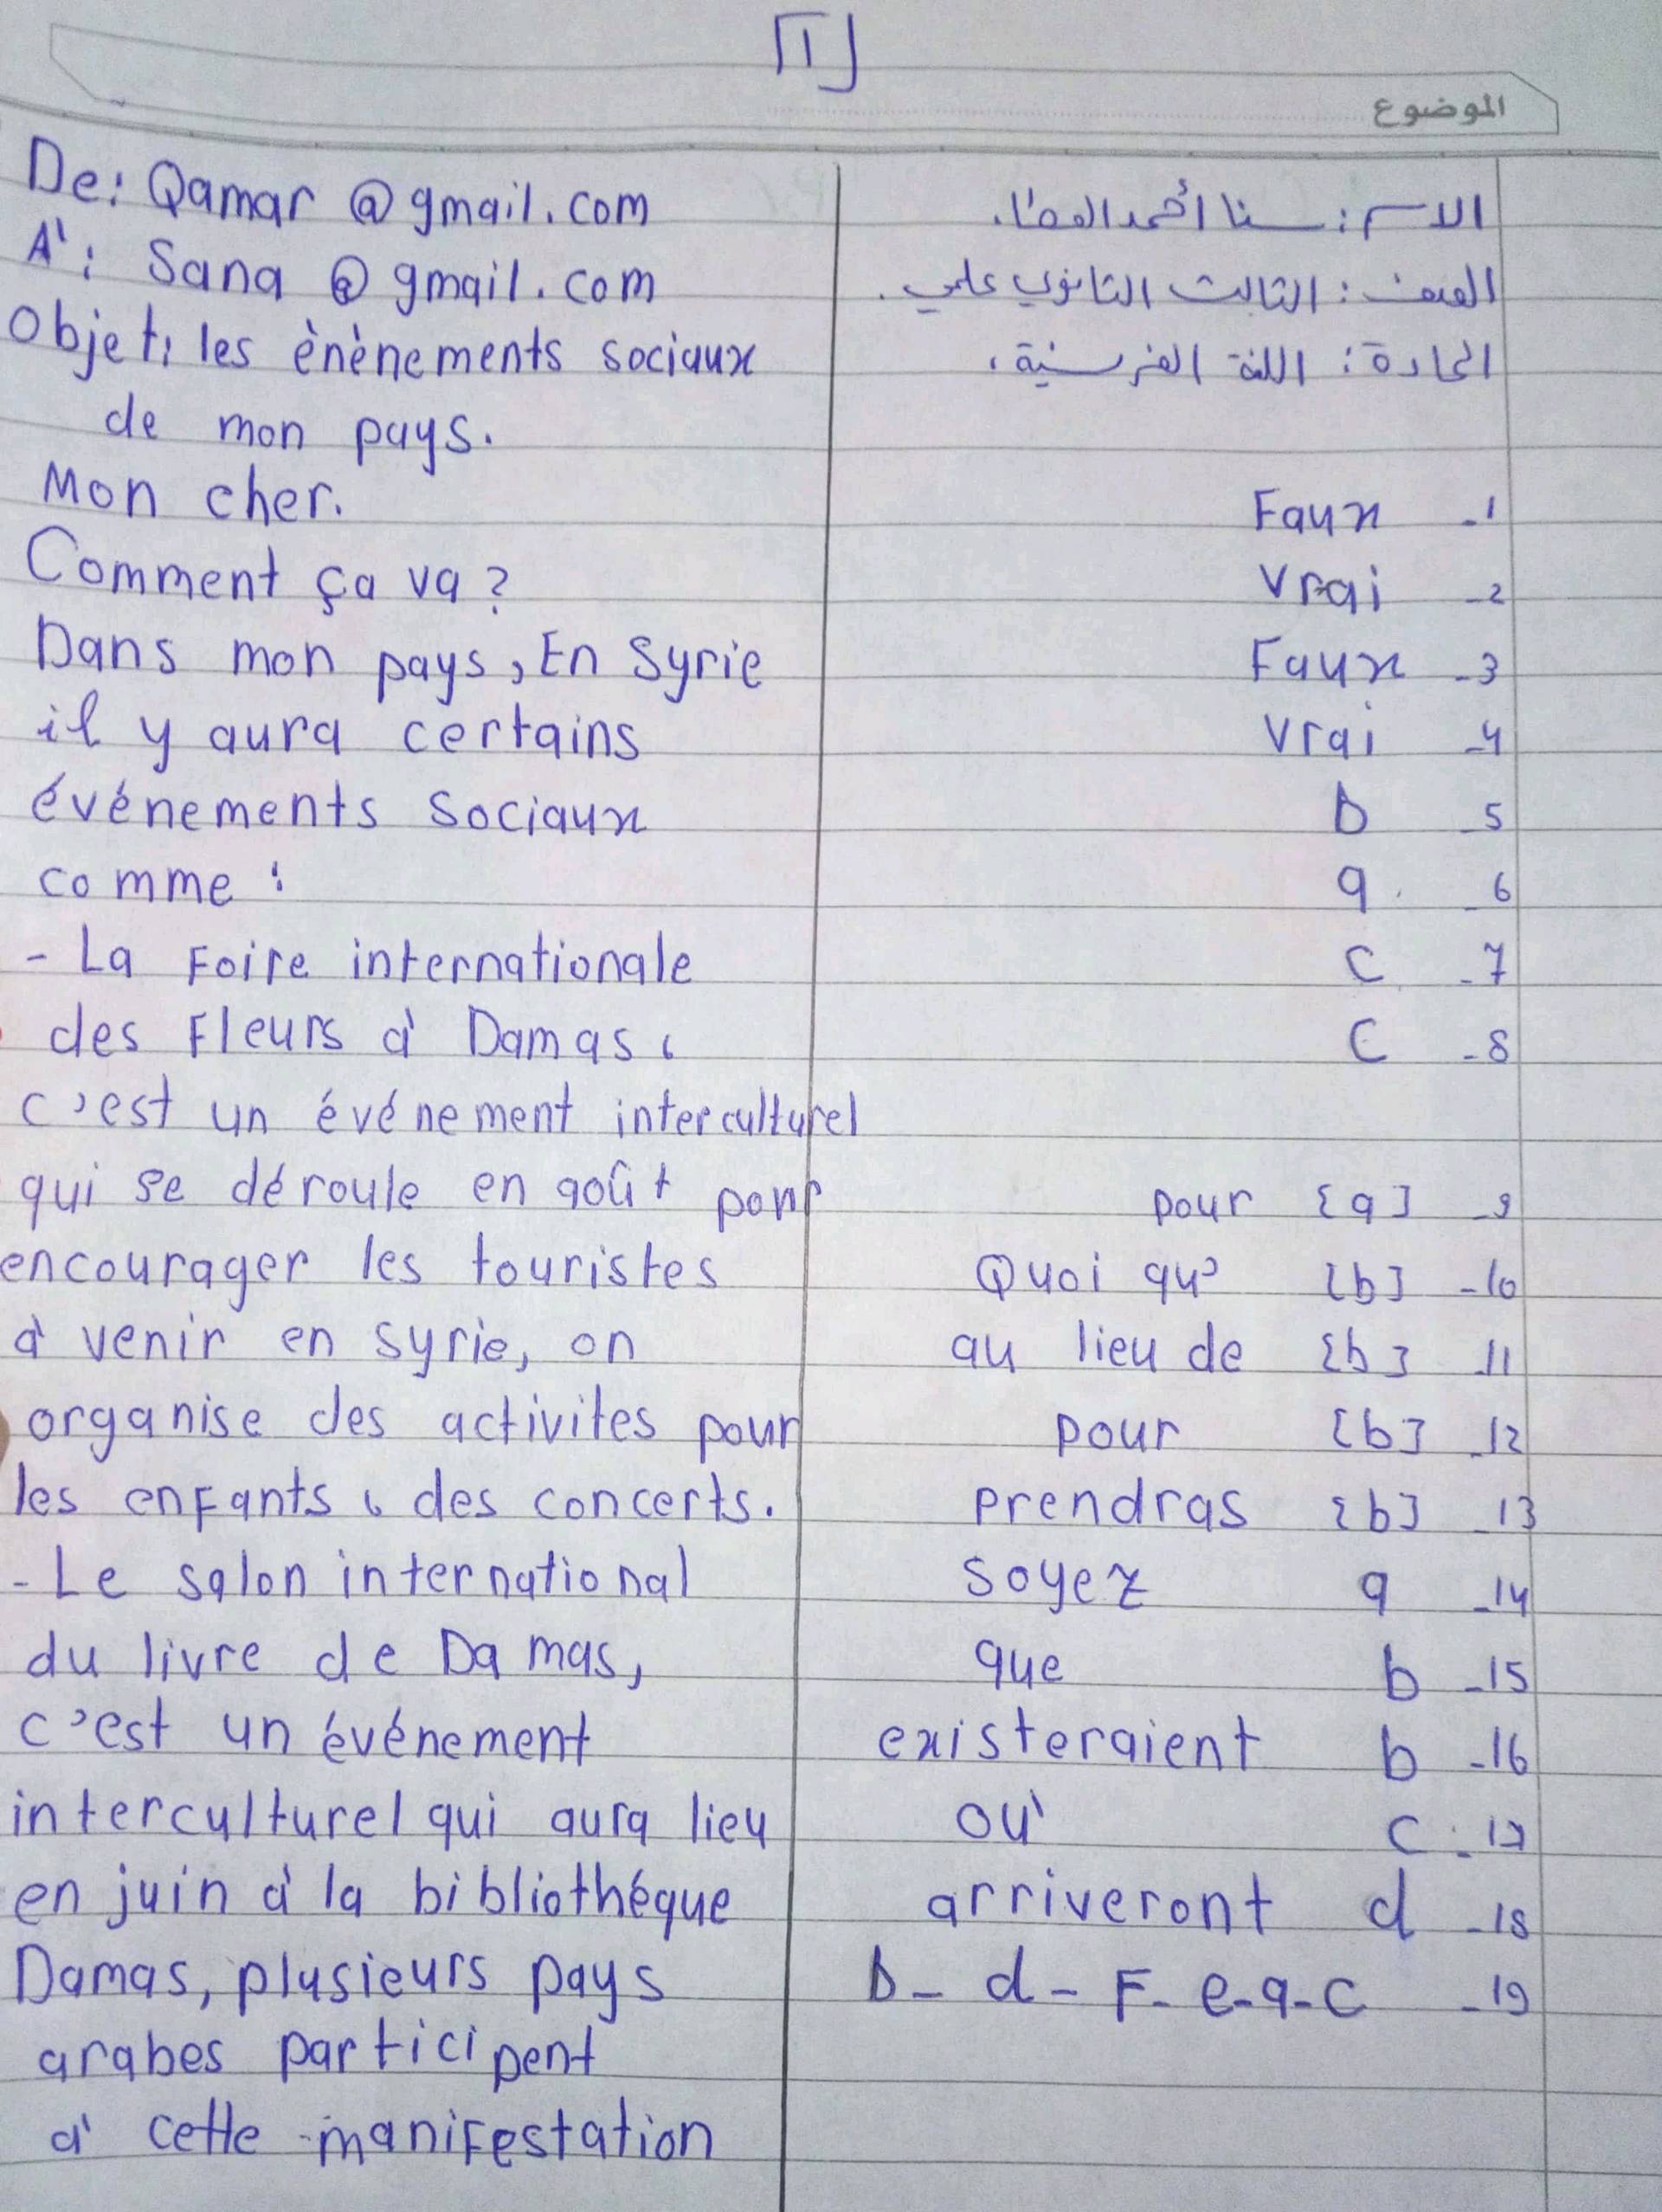 [1]
الموضوع
الاسم: سنا أحمد العطا.
الصف: الثالث الثانوي علمي.
المادة: اللغة الفرنسية.
1- Faux
2- Vrai
3- Faux
4- Vrai
5- b
6- a
7- C
8- C
9- [a] pour
10- [b] Quoi qu'
11- [b] au lieu de
12- [b] pour
13- [b] prendras
14- a soyez
15- b que
16- b existeraient
17- C où
18- d arriveront
19- b - d - F - e - a - c
De: Qamar @ gmail.com
A': Sana @ gmail.com
Objet: les ènènements sociaux
de mon pays.
Mon cher.
Comment ça va?
Dans mon pays, En Syrie
il y aura certains
événements Sociaux
comme :
- La Foire internationale
des Fleurs à Damas،
c'est un événement interculturel
qui se déroule en août pour
encourager les touristes
à venir en syrie, on
organise des activites pour
les enfants، des concerts.
- Le salon international
du livre de Damas,
c'est un événement
interculturel qui aura lieu
en juin à la bibliothéque
Damas, plusieurs pays
arabes participent
à cette manifestation